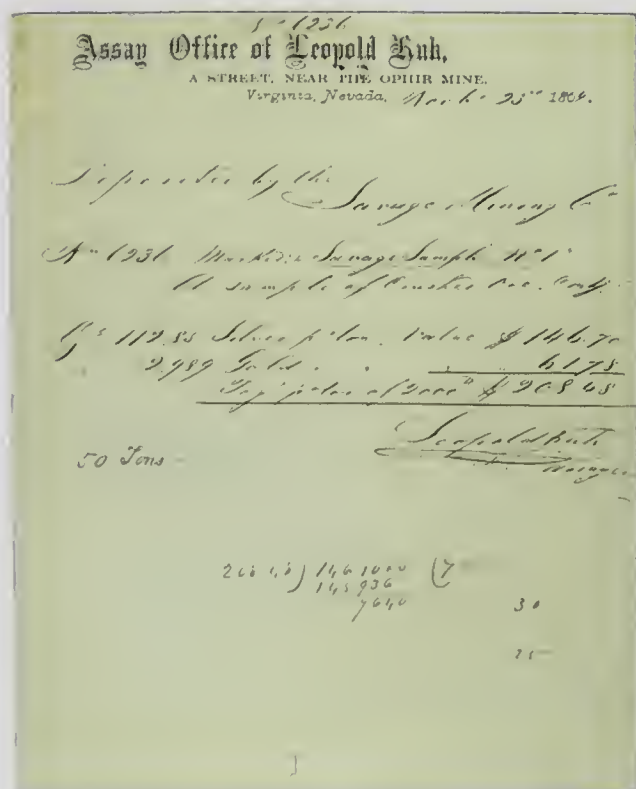 No 1236
Assay Office of Leopold Kuh,
A STREET, NEAR THE OPHIR MINE.
Virginia, Nevada, 23rd 1864.
Deposited by the
Savage Mining Co
No 1236 Marked: Savage Sample No 1
A sample of Crushed Ore. Only.
Silver p. ton. Value $ 146.70
2.989 Gold . . . 61 78
p. ton of 2000 lb $ 208 48
Leopold Kuh
Assayer
50 Tons
(7
145936
30